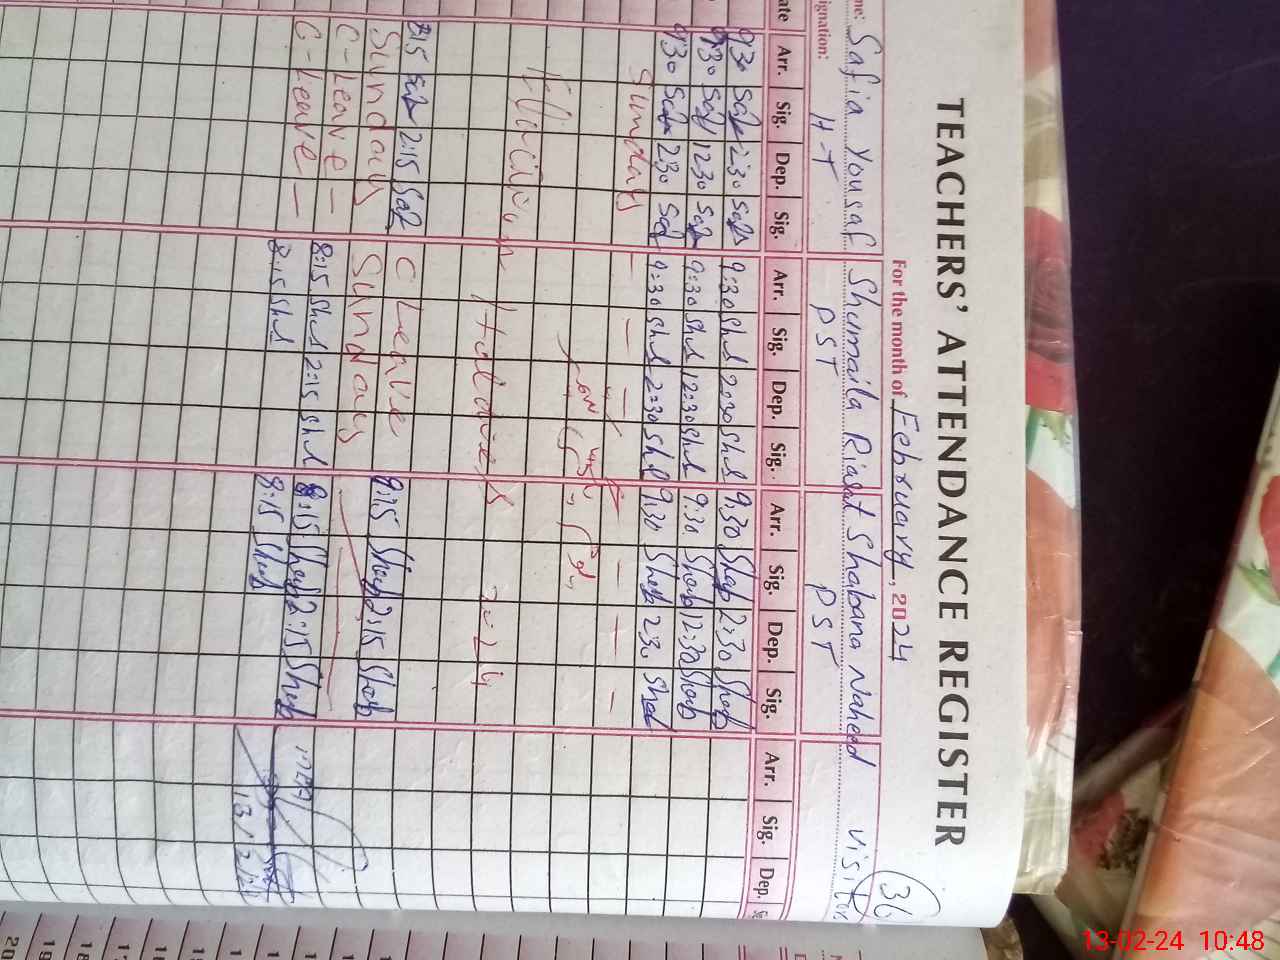 36
TEACHERS' ATTENDANCE REGISTER
For the month of February, 2024
me: Safia Yousaf Shumaila Riasat Shabana Naheed Visitor
ignation: H-T PST PST
ate Arr. Sig. Dep. Sig. Arr. Sig. Dep. Sig. Arr. Sig. Dep. Sig. Arr. Sig. Dep. S
9:30 Saf 2:30 Saf 9:30 Shul 2:30 Shul 9:30 Shab 2:30 Shab
9:30 Saf 12:30 Saf 9:30 Shul 12:30 Shul 9:30 Shab 12:30 Shab
9:30 Saf 2:30 Saf 9:30 Shul 2:30 Shul 9:30 Shab 2:30 Shab
Sunday - - - - - -
Election Holidays 2024
8:15 Saf 2:15 Saf C Leave 8:15 Shab 2:15 Shab
Sunday Sunday
C-Leave- 8:15 Shul 2:15 Shul 8:15 Shab 2:15 Shab
C-Leave- 8:15 Shul 8:15 Shab
13/2/
20 19 18 17
13-02-24 10:48